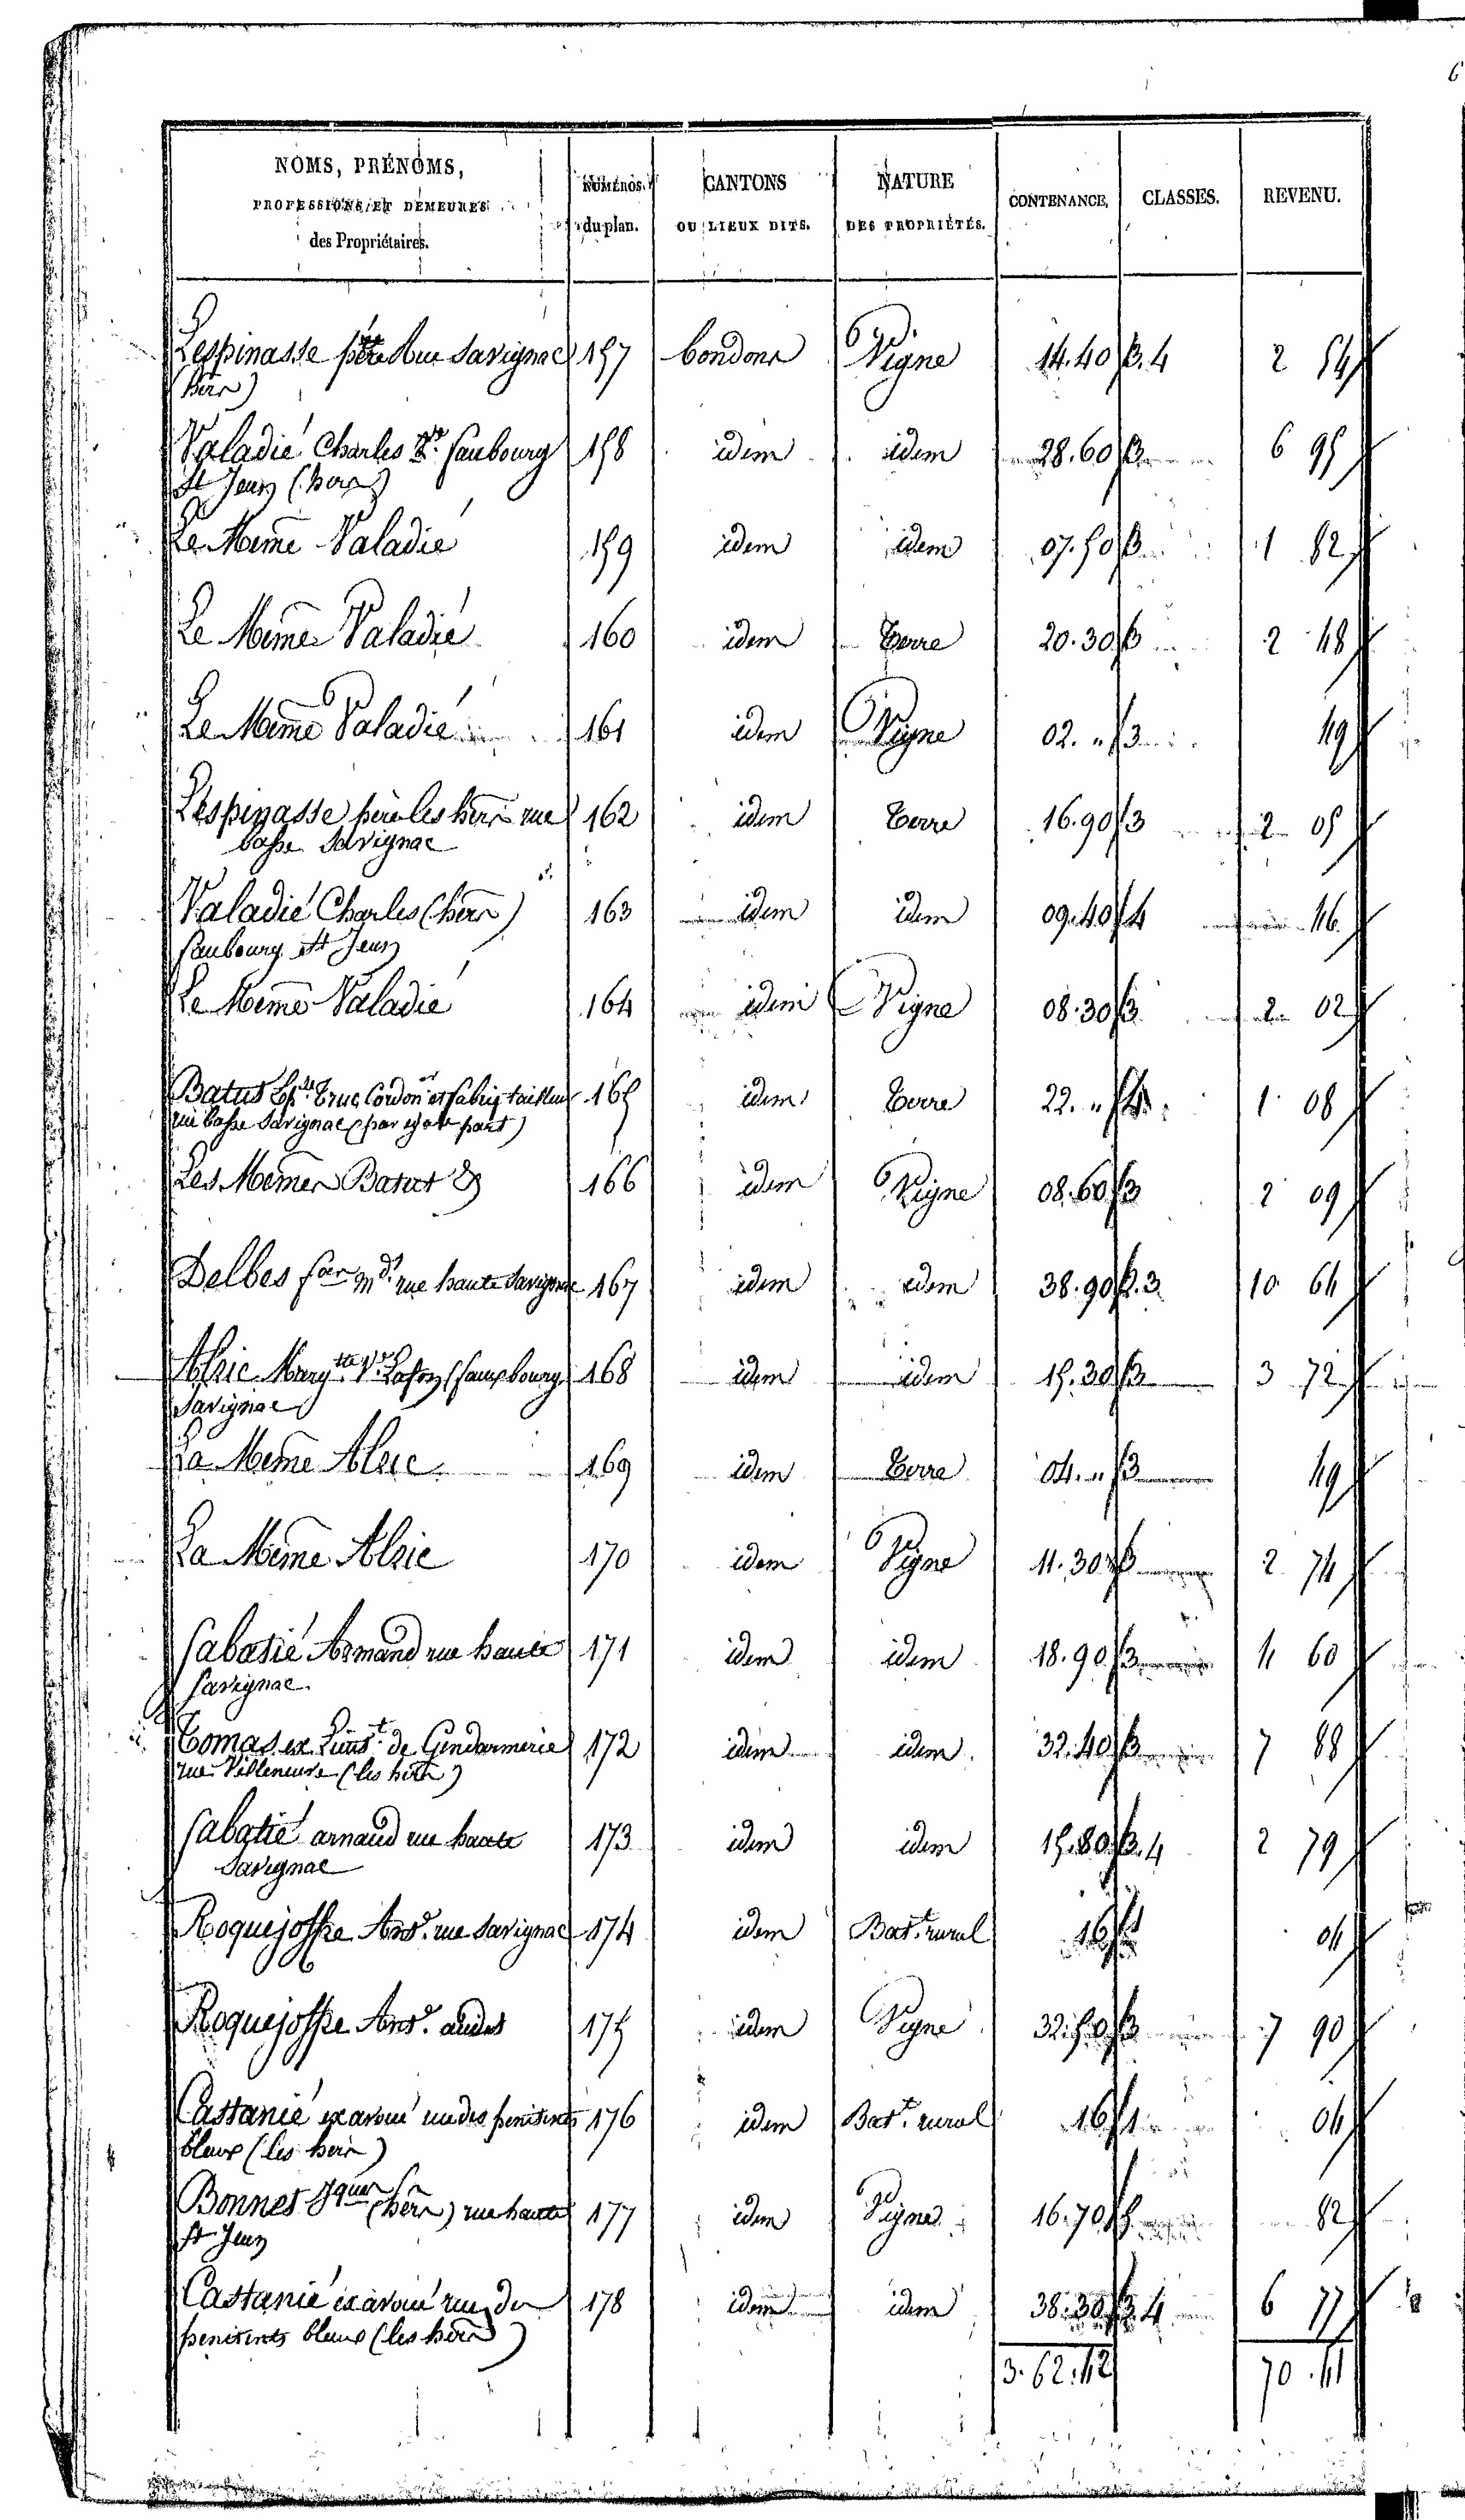 NOMS, PRÉNOMS, PROFESSIONS ET DEMEURES des Propriétaires. NUMÉROS du plan. CANTONS OU LIEUX DITS. NATURE DES PROPRIÉTÉS. CONTENANCE. CLASSES. REVENU.
Lespinasse père Rue Savignac 157 bondons Vigne 14.40 3.4 2 54
(hérs)
Valadié Charles faubourg 158 idem idem 28.60 3 6 95
St Jean (hers)
Le Meme Valadié 159 idem idem 07.50 3 1 82
Le Meme Valadié 160 idem Terre 20.30 3 2 48
Le Meme Valadié 161 idem Vigne 02. „ 3 49
Lespinasse père les hers rue 162 idem Terre 16.90 3 2 05
basse Savignac
Valadié Charles (hers) 163 idem idem 09.40 4 46
faubourg St Jean
Le Meme Valadié 164 idem Vigne 08.30 3 2 02
Batut Truc Cordon et tailleur 165 idem Terre 22. „ 4 1 08
rue basse Savignac (par egale part)
Les Memes Batut & 166 idem Vigne 08.60 3 2 09
Delbes fais md. rue haute Savignac 167 idem idem 38.90 2.3 10 64
Alric Margte Ve Lafon faubourg 168 idem idem 15.30 3 3 72
Savignac
La Meme Alric 169 idem Terre 04. „ 3 49
La Meme Alric 170 idem Vigne 11.30 3 2 74
Sabatié Armand rue haute 171 idem idem 18.90 3 4 60
Savignac
Tomas ex Lieutt de Gendarmerie 172 idem idem 32.40 3 7 88
rue Villeneuve (les hers)
Sabatié arnaud rue haute 173 idem idem 15.80 3.4 2 79
Savignac
Roquejoffre Antd. rue Savignac 174 idem Bat. rural 16 1 04
Roquejoffre Antd. audit 175 idem Vigne 32.50 3 7 90
Castanié ex avoué rue des penitents 176 idem Bat. rural 16 1 04
bleus (les hers)
Bonnet Jques (hers) rue haute 177 idem Vigne 16.70 5 82
St Jean
Castanié ex avoué rue des 178 idem idem 38.30 3.4 6 77
penitents bleus (les hers)
3.62.42 70.41